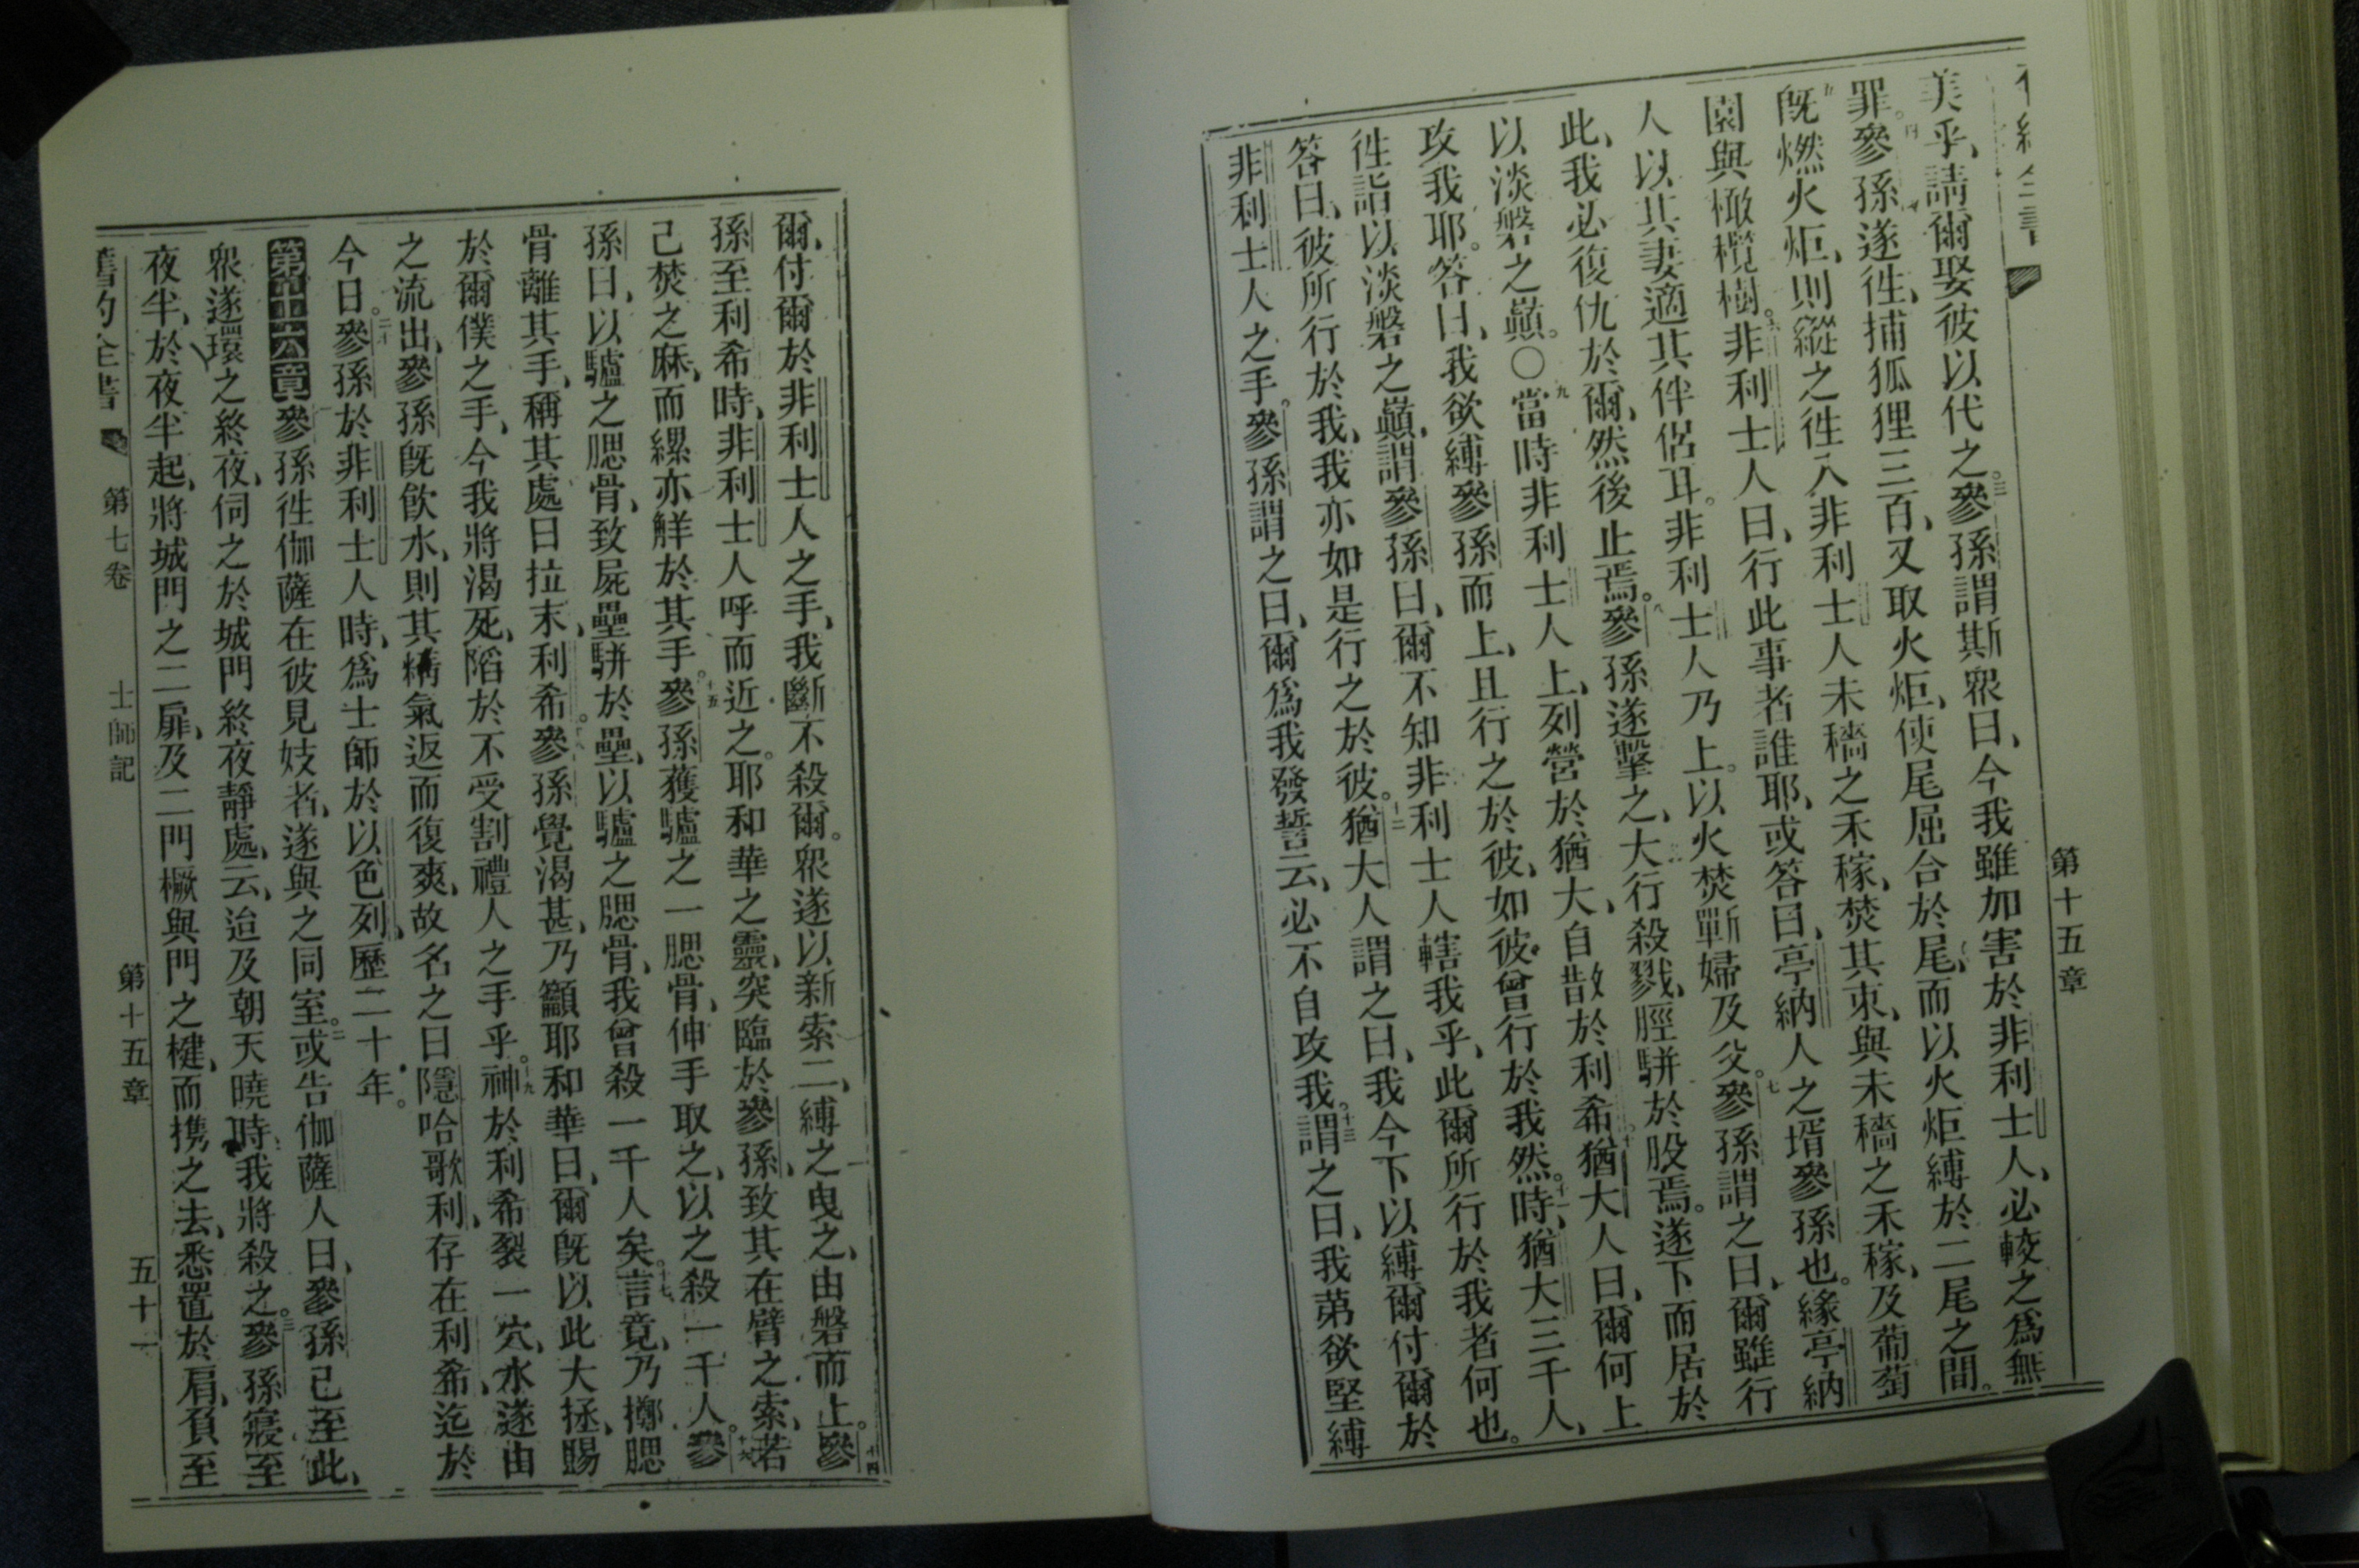 第十五章
美乎、請爾娶彼以代之。三參孫謂斯衆曰、今我雖加害於非利士人、必較之爲無
罪。四參孫遂徃、捕狐狸三百、又取火炬、使尾屈合於尾、而以火炬縛於二尾之間。
五旣燃火炬、則縱之徃入非利士人未穡之禾稼、焚其束、與未穡之禾稼、及葡萄
園與橄欖樹。六非利士人曰、行此事者誰耶、或答曰、亭納人之壻參孫也。緣亭納
人以其妻適其伴侶耳。非利士人乃上。以火焚斯婦及父。七參孫謂之曰、爾雖行
此、我必復仇於爾、然後止焉。八參孫遂擊之、大行殺戮、脛騈於股焉。遂下而居於
以淡磐之巔。〇九當時非利士人上、列營於猶大、自散於利希。十猶大人曰、爾何上
攻我耶。答曰、我欲縛參孫而上、且行之於彼、如彼曾行於我然。十一時、猶大三千人、
徃詣以淡磐之巔、謂參孫曰、爾不知非利士人轄我乎、此爾所行於我者何也。
答曰、彼所行於我、我亦如是行之於彼。十二猶大人謂之曰、我今下以縛爾付爾於
非利士人之手。參孫謂之曰、爾爲我發誓云、必不自攻我。十三謂之曰、我苐欲堅縛
爾、付爾於非利士人之手、我斷不殺爾。衆遂以新索二、縛之曳之、由磐而上。十四參
孫至利希時、非利士人呼而近之。耶和華之靈、突臨於參孫、致其在臂之索、若
己焚之麻、而縲亦觧於其手。十五參孫獲驢之一腮骨、伸手取之、以之殺一千人。十六參
孫曰、以驢之腮骨、致屍壘騈於壘、以驢之腮骨、我曾殺一千人矣。十七言竟、乃擲腮
骨離其手、稱其處曰拉末、利希。十八參孫覺渴甚、乃籲耶和華曰、爾旣以此大拯、賜
於爾僕之手、今我將渴死、陷於不受割禮人之手乎。十九神於利希裂一穴、水遂由
之流出、參孫旣飮水、則其精氣返而復爽、故名之曰隱哈歌利、存在利希、迄於
今日。二十參孫於非利士人時、爲士師於以色列、歷二十年。
第十六章參孫徃伽薩在彼見妓者、遂與之同室。二或告伽薩人曰、參孫已至此、
衆遂環之終夜、伺之於城門終夜靜處、云、迨及朝天曉時、我將殺之。三參孫寢至
夜半、於夜半起、將城門之二扉、及二門橛與門之楗、而携之去、悉置於肩、負至
舊約全書 第七卷 士師記 第十五章 五十一